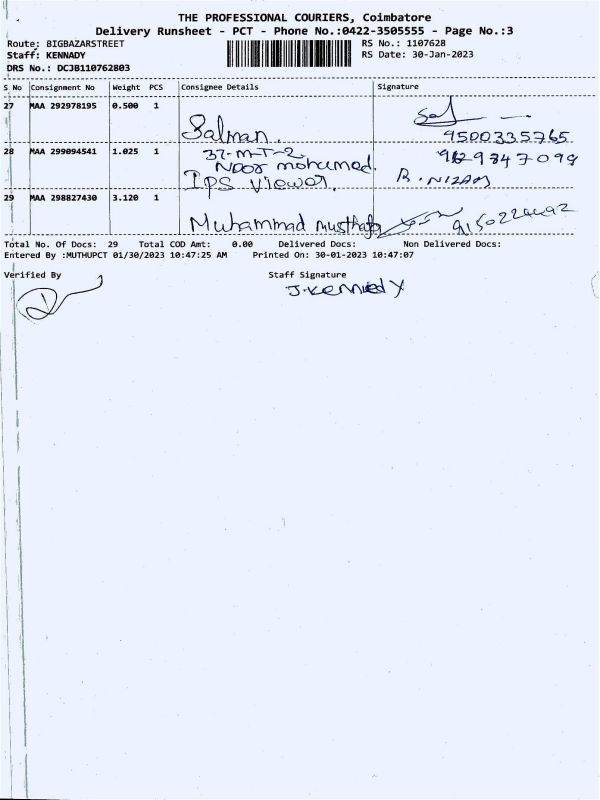 THE PROFESSIONAL COURIERS, Coimbatore
Delivery Runsheet - PCT - Phone No.:0422-3505555 - Page No.:3
Route: BIGBAZARSTREET RS No.: 1107628
Staff: KENNADY RS Date: 30-Jan-2023
DRS No.: DCJB110762803
S No Consignment No Weight PCS Consignee Details Signature
27 MAA 292978195 0.500 1
Salman. 9500335765
28 MAA 299094541 1.025 1 37-M-T-2
Noor mohamed.
IPS Viewer. R. NIZAM
29 MAA 298827430 3.120 1
Muhammad musthafa
Total No. Of Docs: 29 Total COD Amt: 0.00 Delivered Docs: Non Delivered Docs:
Entered By :MUTHUPCT 01/30/2023 10:47:25 AM Printed On: 30-01-2023 10:47:07
Verified By Staff Signature
J.Kennedy